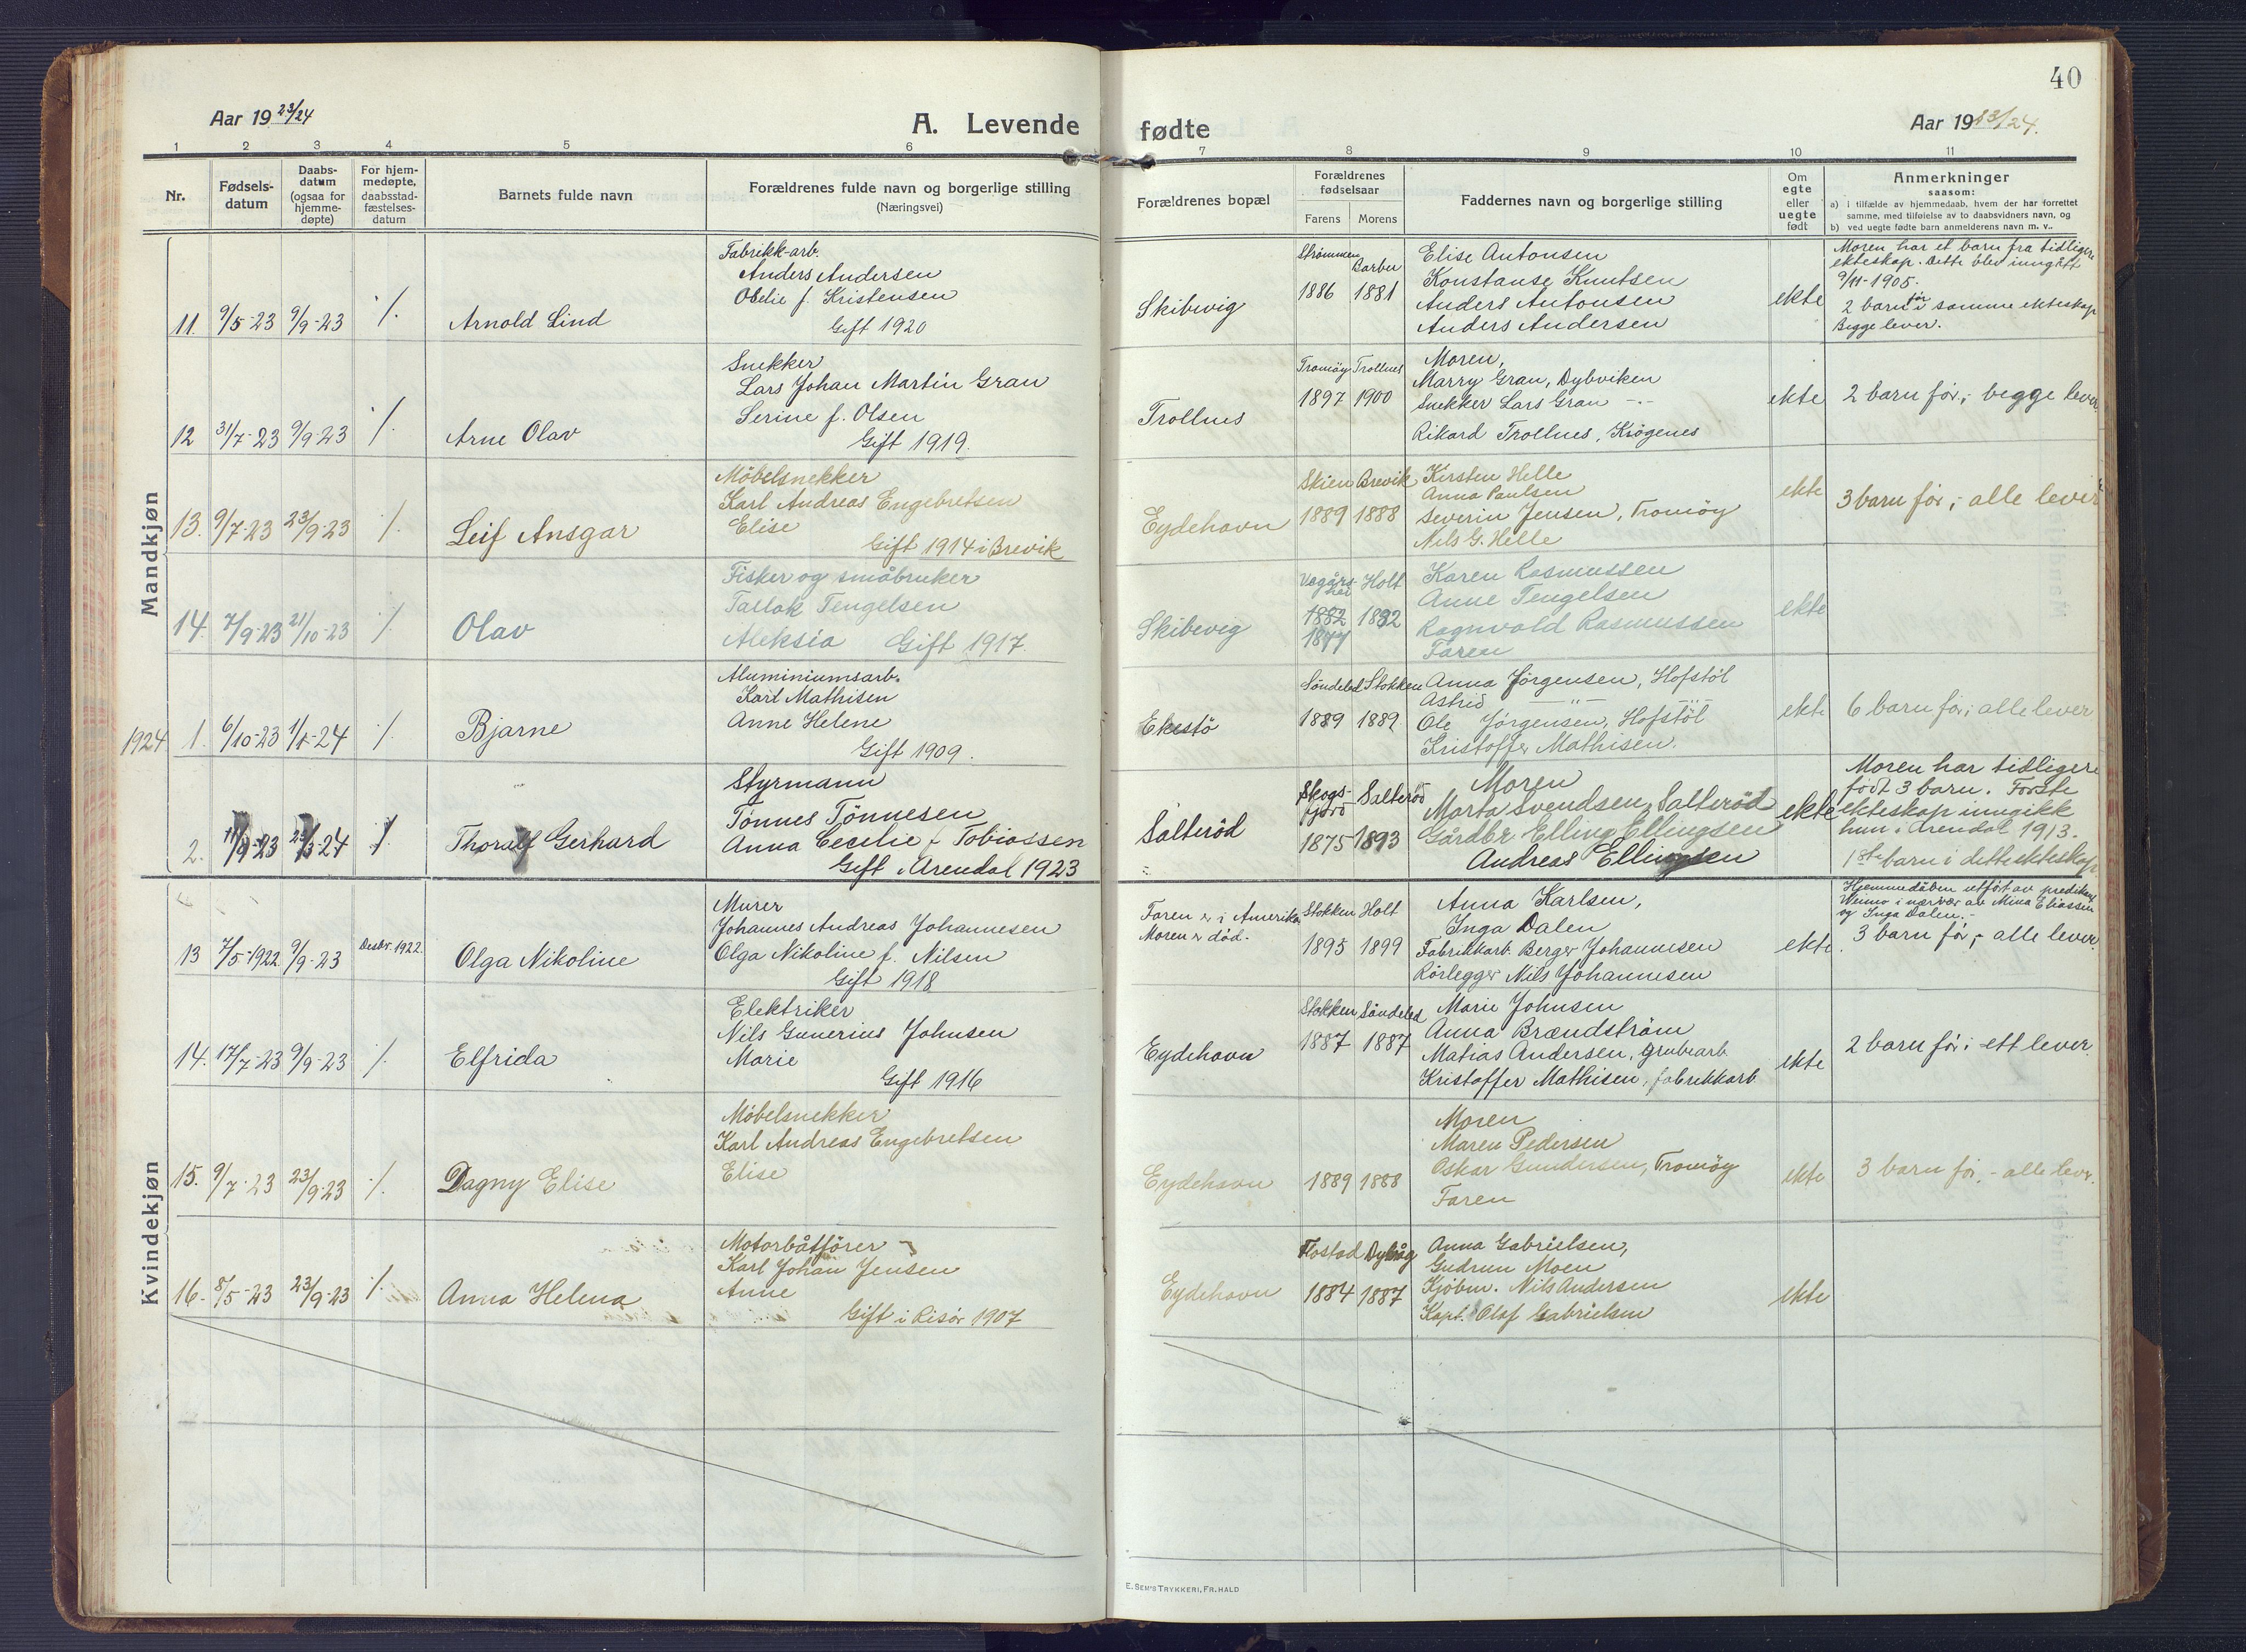 40
Aar 1923/24
A. Levende fødte
Aar 1923/24.
1 2 3 4 5 6 7 8 9 10 11
Nr.
Fødsels-
datum
Daabs-
datum
(ogsaa for
hjemme-
døpte)
For hjem-
medøpte,
daabsstad-
fæstelses-
datum
Barnets fulde navn
Forældrenes fulde navn og borgerlige stilling
(Næringsvei)
Forældrenes bopæl
Forældrenes
fødselsaar
Farens Morens
Faddernes navn og borgerlige stilling
Om
egte
eller
uegte
født
Anmerkninger
saasom:
a) i tilfælde av hjemmedaab, hvem der har forrettet
samme, med tilføielse av to daabsvidners navn, og
b) ved uegte fødte barn anmelderens navn m. v..
Mandkjøn
11. 9/5-23 9/9-23 ./. Arnold Lind
Fabrikk-arb.
Anders Andersen
Obelie f. Kristensen
Gift 1920
Skibevig
Strømmen Barbu
1886 1881
Elise Antonsen
Konstanse Knutsen
Anders Antonsen
Anders Andersen
ekte
Moren har et barn fra tidligere
ekteskap. Dette blev inngått
9/11-1905.
2 barn før i samme ekteskap
Begge lever.
12 31/7-23 9/9-23 ./. Arne Olav
Snekker
Lars Johan Martin Gran
Serine f. Olsen
Gift 1919.
Trollnes
Tromøy Trollnes
1897 1900
Moren,
Marry Gran, Dybviken
Snekker Lars Gran -"-
Rikard Trollnes, Kiøgenes
ekte
2 barn før; begge lever.
13. 9/7-23 23/9-23 ./. Leif Ansgar
Möbelsnekker
Karl Andreas Engebretsen
Elise
Gift 1914 i Brevik
Eydehavn
Skien Brevik
1889 1888
Kirsten Helle
Anna Paulsen
Severin Jensen, Tromöy
Nils G. Helle
ekte
3 barn før; alle lever
14. 7/9-23 21/10-23 ./. Olav
Fisker og småbruker
Tallak Tengelsen
Aleksia Gift 1917.
Skibevig
Vegårs-
hei Holt
1882 1892
1877
Karen Rasmussen
Anne Tengelsen
Ragnvald Rasmussen
Faren
ekte
1924 1. 6/10-23 1/1-24 ./. Bjarne
Aluminiumsarb.
Karl Mathisen
Anne Helene
Gift 1909.
Ekestö
Söndeled Stokken
1889 1889.
Anna Jörgensen, Hofstöl
Astrid -"- -"-
Ole Jörgensen, Hofstöl
Kristoffer Mathisen.
ekte
6 barn før; alle lever
2. 11/9-23 ./. Thoralf Gerhard
Styrmann
Tønnes Tønnesen
Anna Cecilie f Tobiassen
Gift i Arendal 1923
Salteröd
Skogs-
fjord Salteröd
1875 1893
Moren
Marta Svendsen, Salteröd
Gårdbr Elling Ellingsen
Andreas Ellingsen
ekte
Moren har tidligere
født 3 barn. Første
ekteskap inngikk
hun i Arendal 1913.
1ste barn i dette ekteskap
Kvindekjøn
13 7/5-1922 9/9-23 Desbr. 1922. Olga Nikoline
Murer
Johannes Andreas Johannesen
Olga Nikoline f. Nilsen
Gift 1918
Faren er i Amerika
Moren er død.
Stokken Holt
1895 1899
Anna Karlsen,
Inga Dalen
Fabrikkarb. Berger Johannesen
Rörlegger Nils Johannesen
ekte.
Hjemmedåben utført av predikant
i nærvær av Mina Eliassen
og Inga Dalen. -
3 barn før; alle lever.
14. 17/7-23 9/9-23 ./. Elfrida
Elektriker
Nils Gunerius Johnsen
Marie
Gift 1916
Eydehavn
Stokken Söndeled
1887 1887
Marie Johnsen
Anna Brændström
Matias Andersen, grubearb.
Kristoffer Mathisen, fabrikkarb
ekte
2 barn før; ett lever.
15. 9/7-23 23/9-23 ./. Dagny Elise
Möbelsnekker
Karl Andreas Engebretsen
Elise
Eydehavn
1889 1888
Moren
Maren Pedersen
Oskar Gundersen, Tromöy
Faren
ekte
3 barn før, - alle lever.
16. 8/5-23 23/9-23 ./. Anna Helena
Motorbåtförer
Karl Johan Jensen
Anne
Gift i Risör 1907
Eydehavn
Flostad Dybvåg
1884 1887
Anna Gabrielsen,
Gudrun Moen
Kjöbm. Nils Andersen
Kapt. Olaf Gabrielsen
ekte
E. SEM'S TRYKKERI, FR. HALD